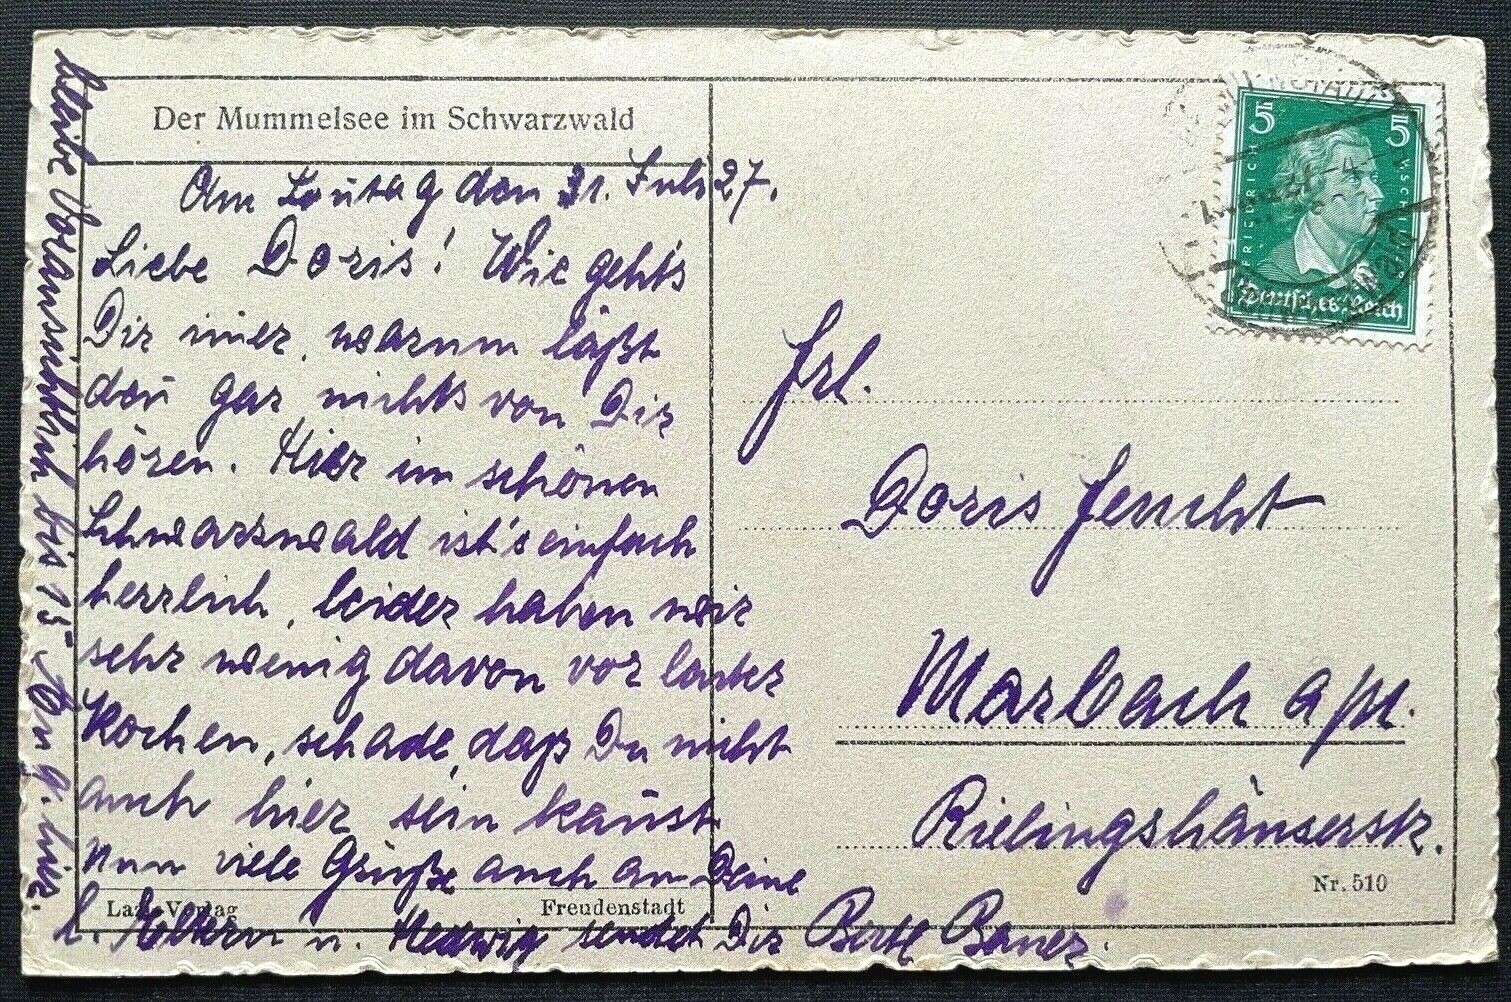 Der Mummelsee im Schwarzwald
Am Sontag den 31. Juli 27.
Liebe Doris! Wie gehts
Dir imer, warum läßt
den gar nichts von Dir
hören. Hier im schönen
Schwarzwald ist's einfach
herrlich, leider haben wir
sehr wenig davon vor lauter
Kochen, schade, daß Du nicht
auch hier sein kanst
Nun viele Grüße auch an Deine
l. Eltern u. Hedwig sendet Dir Berth Bauer.
bleibe Voraussichtlich bis 15ten
Frl.
Doris Feucht
Marbach a/N.
Rielingshäuserstr.
Nr. 510
Verlag
Freudenstadt
5
5
FRIEDRICH
Deutsches Reich